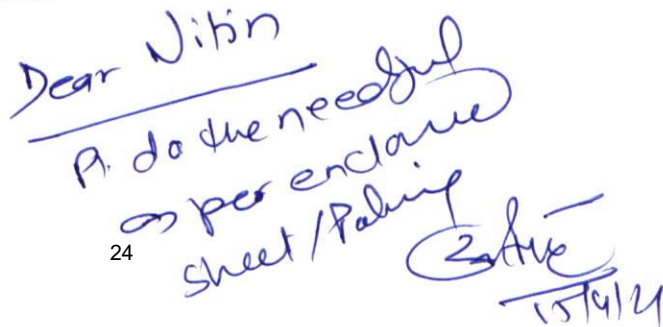 Dear Nitin
Pl. do the needful
as per enclosure
sheet /
24
15/9/21